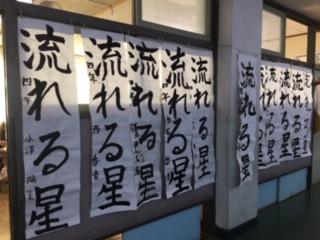 流れる星
四年
流れる星
流れる星
流れる星
流れる星
流れる星
流れる星
流れる星
流れる星
流れる星